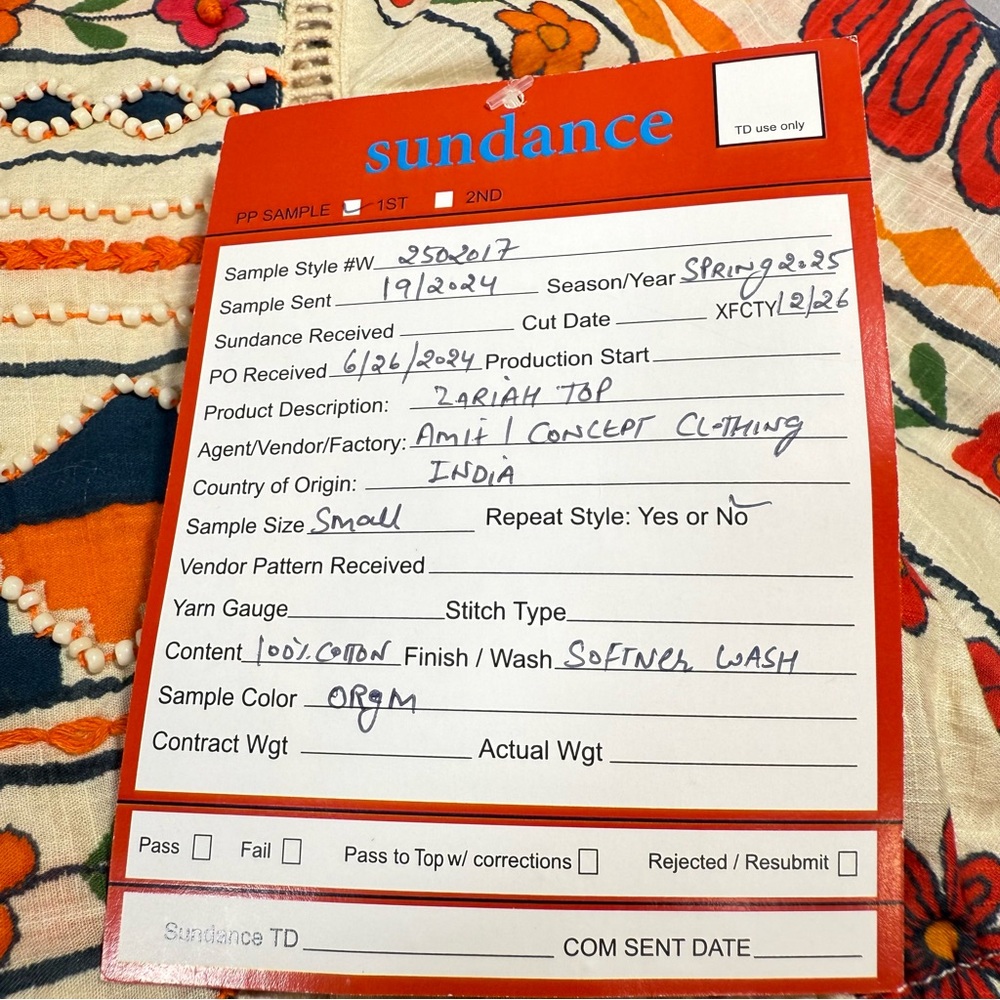 sundance
TD use only
PP SAMPLE 1ST 2ND
Sample Style #W 2502017
Sample Sent 19/2024 Season/Year SPRINg 2025
Sundance Received Cut Date XFCTY 12/26
PO Received 6/26/2024 Production Start
Product Description: ZARIAH TOP
Agent/Vendor/Factory: Amit / CONCEPT CLOTHING
Country of Origin: INDIA
Sample Size Small Repeat Style: Yes or No
Vendor Pattern Received
Yarn Gauge Stitch Type
Content 100% COTTON Finish / Wash SOFTNER WASH
Sample Color ORgM
Contract Wgt Actual Wgt
Pass Fail Pass to Top w/ corrections Rejected / Resubmit
Sundance TD COM SENT DATE